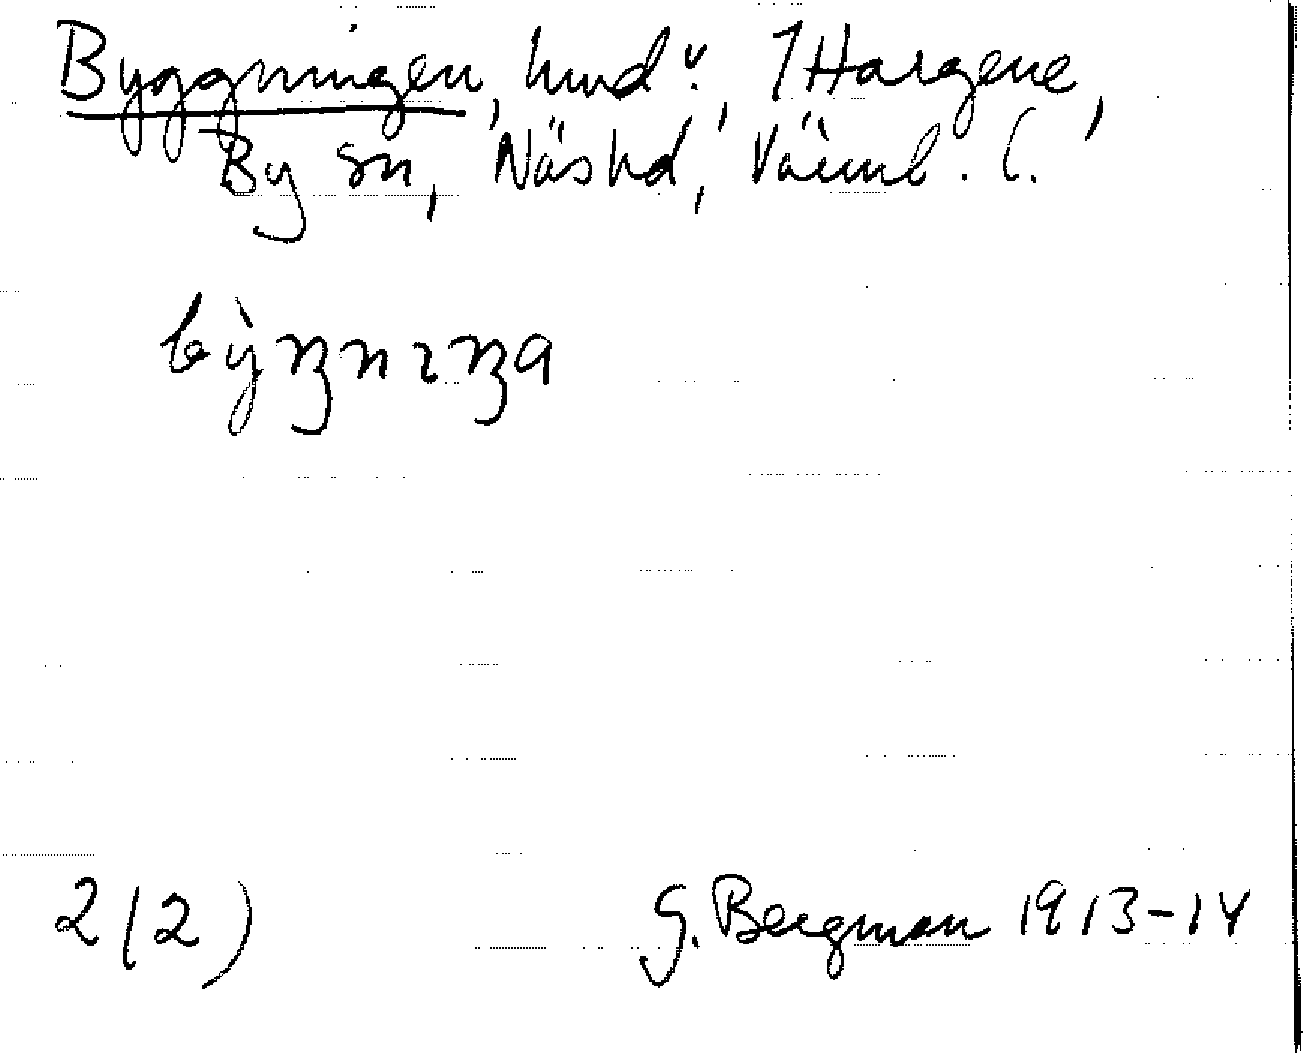 Byggningen, hmd v., 1 Hargene,
By sn, Näs hd, Värml. l.
2(2)
G. Bergman 1913-14